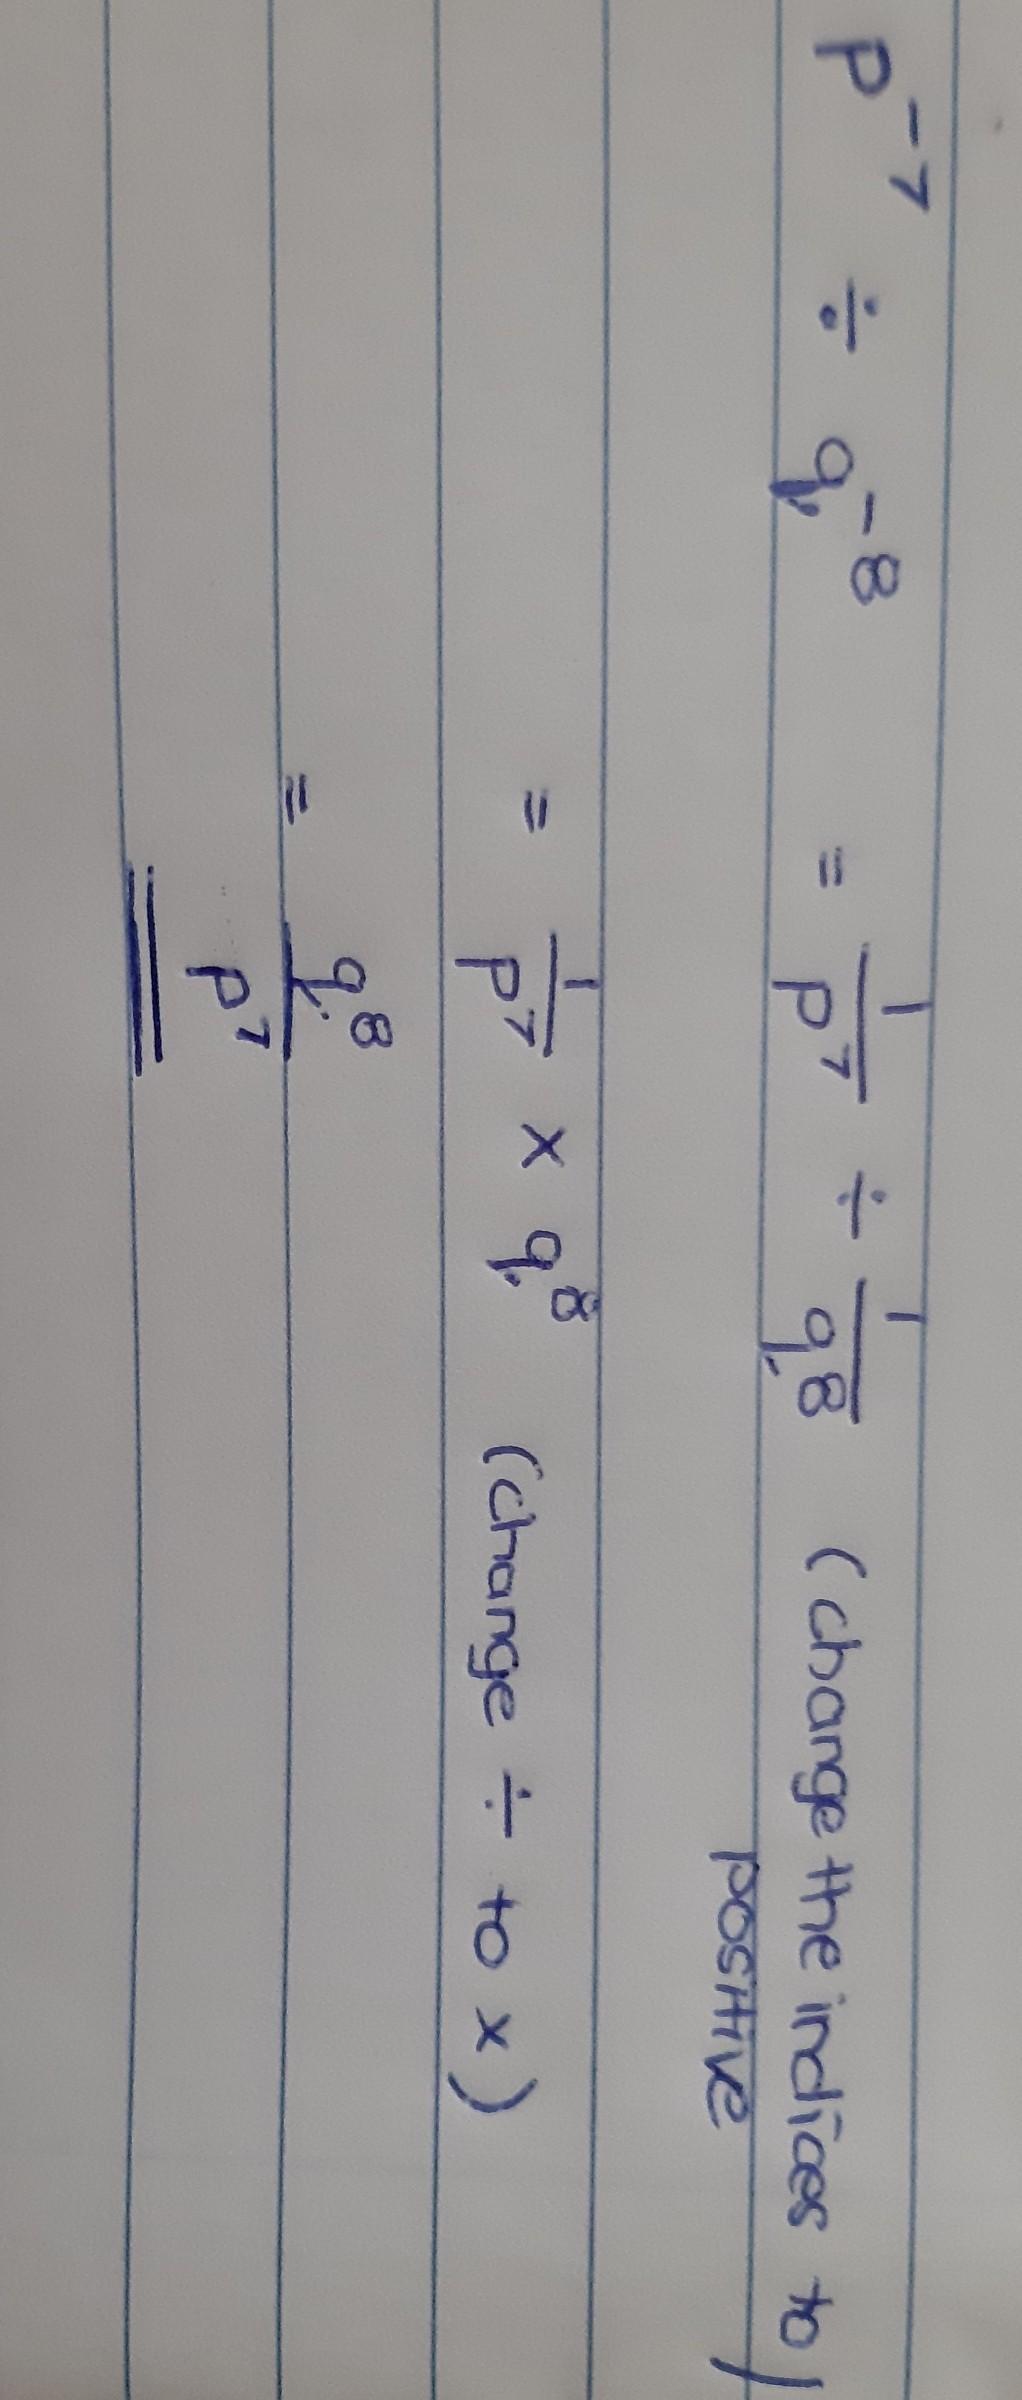 p⁻⁷ ÷ q⁻⁸ = 1/p⁷ ÷ 1/q⁸ (change the indices to
positive)
= 1/p⁷ × q⁸ (change ÷ to ×)
= q⁸/p⁷